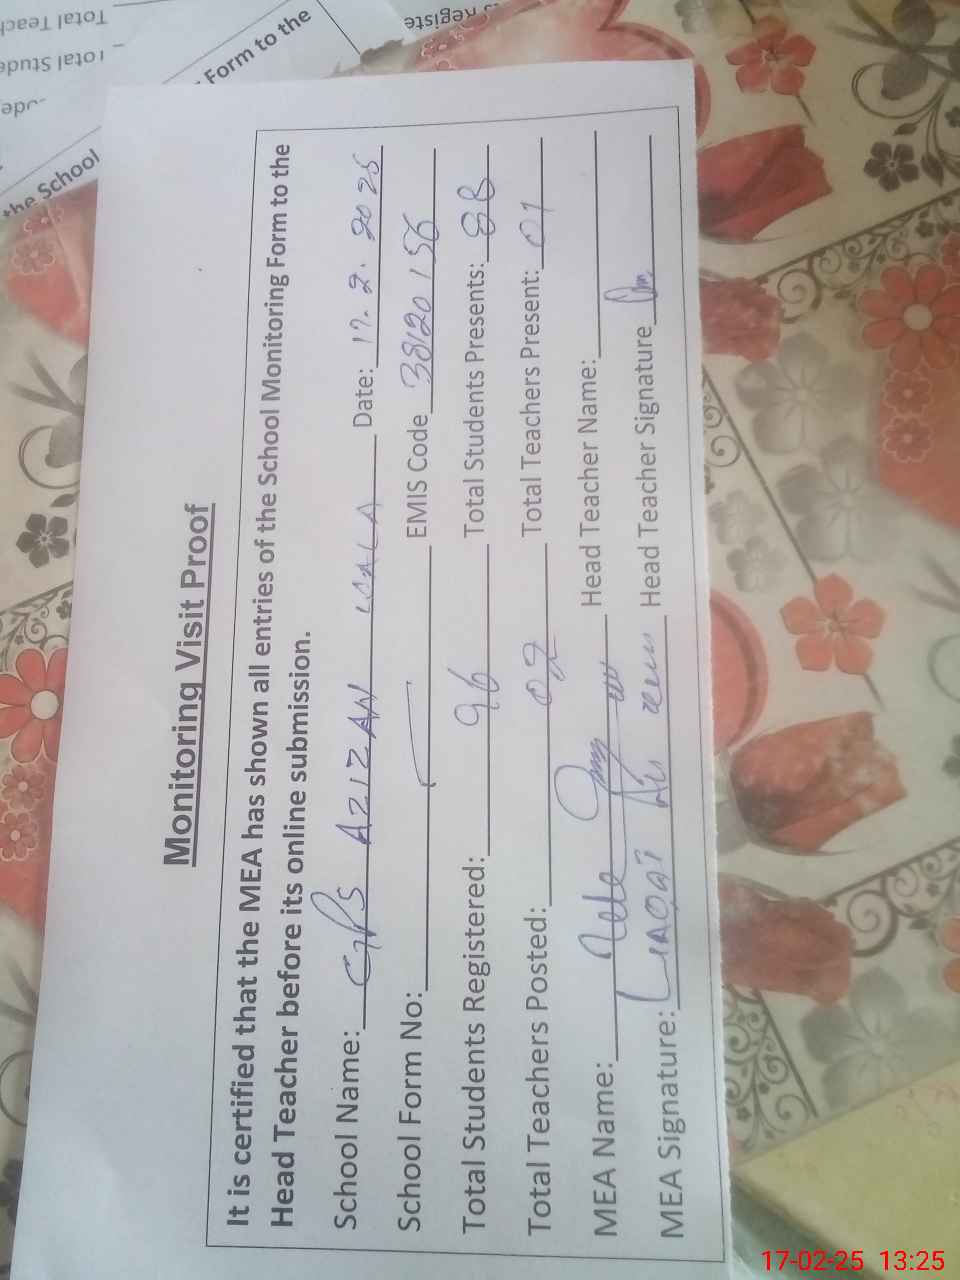 Total Teach
Total Stude
ode
Form to the
the School
s Registe
Monitoring Visit Proof
It is certified that the MEA has shown all entries of the School Monitoring Form to the
Head Teacher before its online submission.
School Name: GPS AZIZAN WALA Date: 17.2.2025
School Form No: EMIS Code 38120156
Total Students Registered: 96 Total Students Presents: 88
Total Teachers Posted: 02 Total Teachers Present: 01
MEA Name: Head Teacher Name:
MEA Signature: Head Teacher Signature
17-02-25 13:25